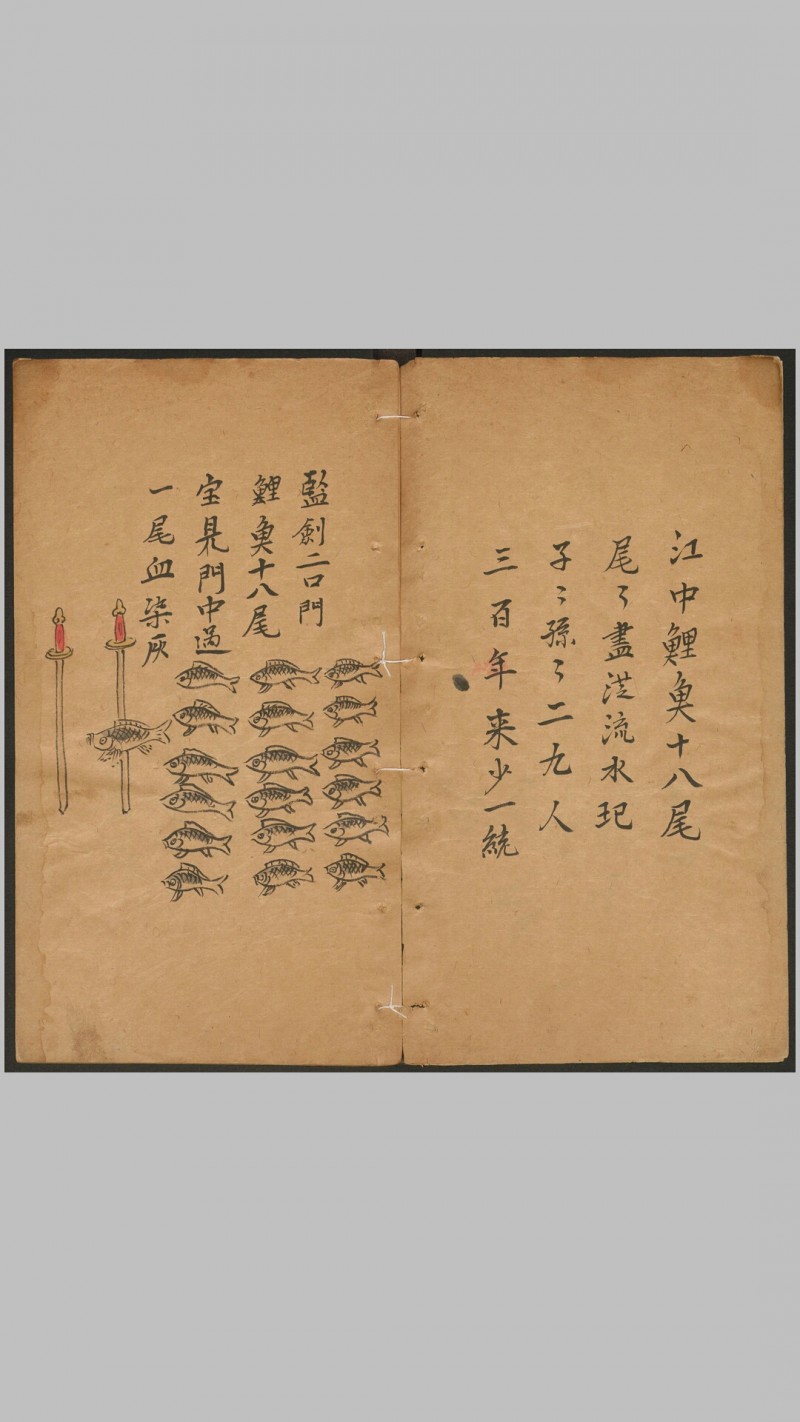 江中鯉奐十八尾
尾々盡泟流水玘
子〻孫々二九人
三百年来少一統
監劍二口門
鯉奐十八尾
宝見門中過
一尾血柒灰